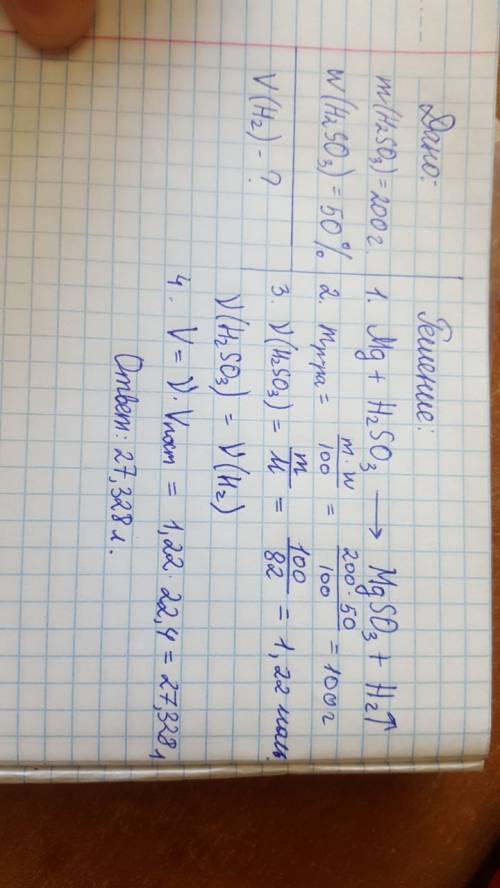 Дано:
m(H₂SO₃) = 200 г.
w(H₂SO₃) = 50%
V(H₂) - ?
Решение:
1. Mg + H₂SO₃ ⟶ MgSO₃ + H₂↑
2. = m·w/100 = 200·50/100 = 100 г
3. ν(H₂SO₃) = m/M = 100/82 = 1,22 моль
ν(H₂SO₃) = ν(H₂)
4. V = ν · = 1,22 · 22,4 = 27,328 л
Ответ: 27,328 л.